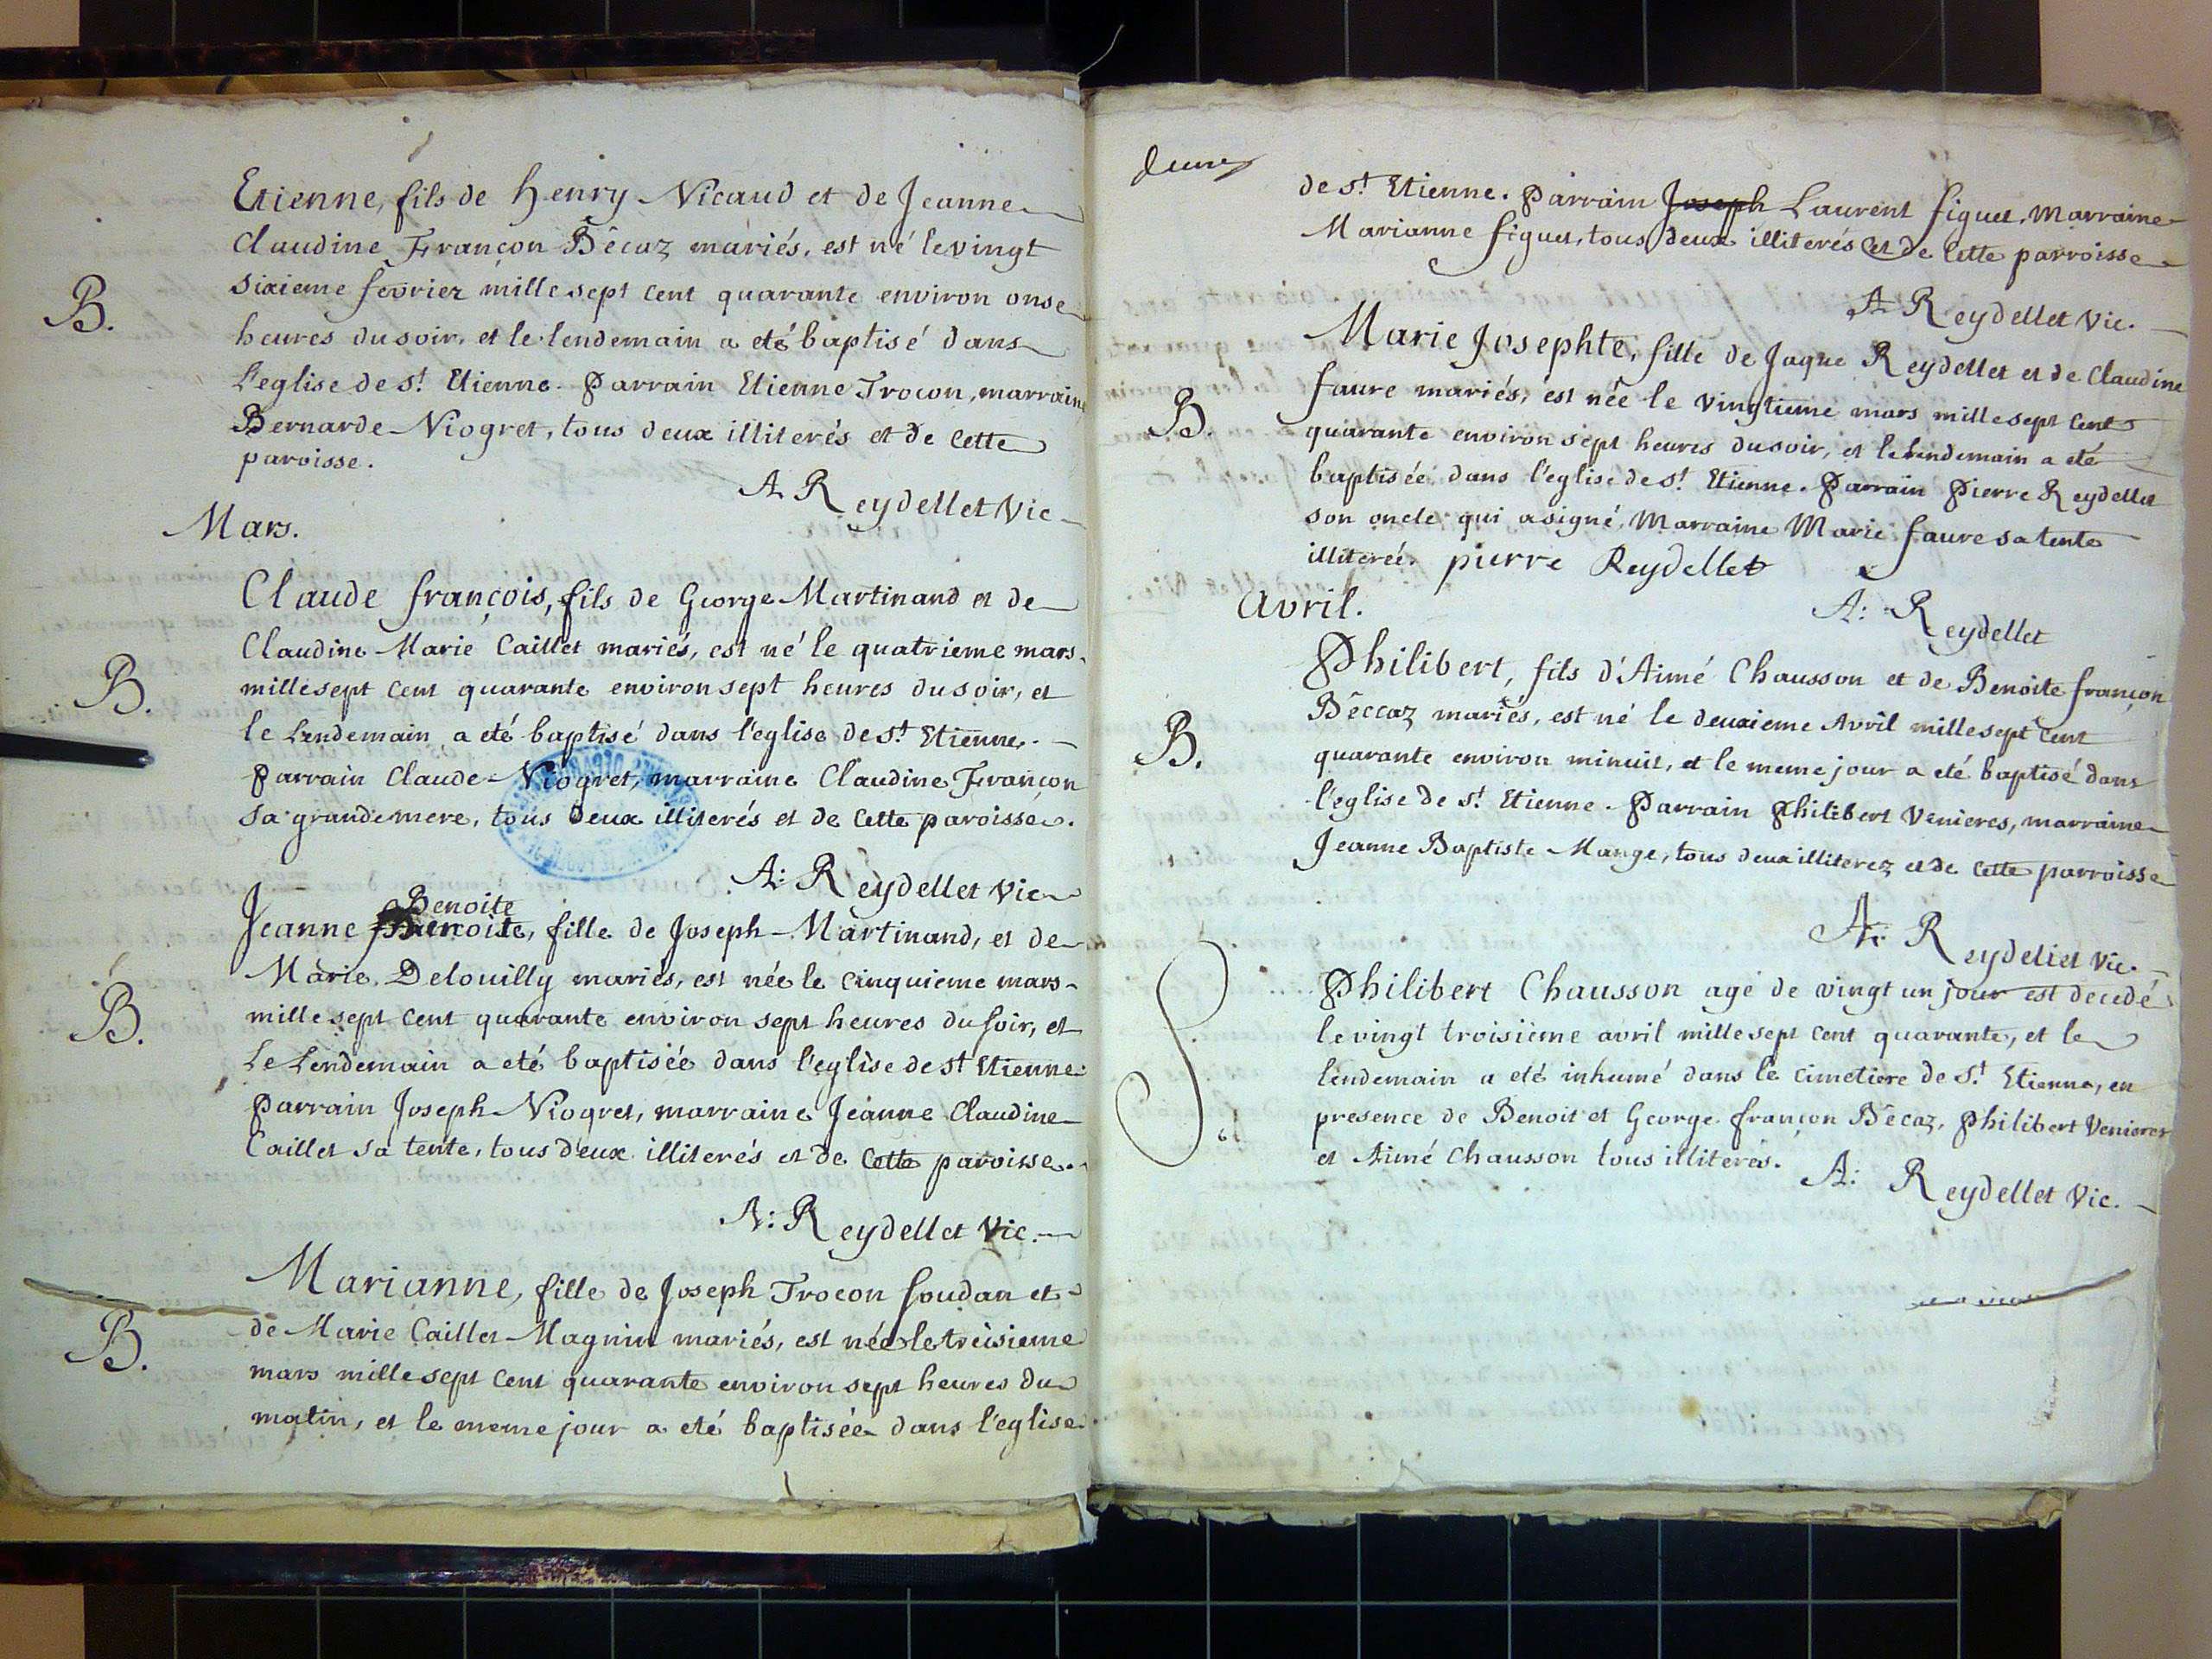 Etienne, fils de henry Nicaud et de Jeanne
Claudine Françon Bêcaz mariés, est né le vingt
B.
sixieme fevrier mille sept cent quarante environ onse
heures du soir, et le lendemain a eté baptisé dans
l'eglise de St Etienne. Parrain Etienne Trocon, marraine
Bernarde Niogret, tous deux illiterés et de cette
paroisse.
A Reydellet Vic
Mars.
Claude françois, fils de George Martinand et de
Claudine Marie Caillet mariés, est né le quatrieme mars
B.
mille sept cent quarante environ sept heures du soir, et
le lendemain a eté baptisé dans l'eglise de St Etienne.
Parrain Claude Niogret, marraine Claudine Françon
sa grande mere, tous deux illiterés et de cette paroisse.
A: Reydellet Vic
Benoite
Jeanne Benoite, fille de Joseph Martinand, et de
Marie Delouilly mariés, est née le cinquieme mars
B.
mille sept cent quarante environ sept heures du soir, et
le lendemain a eté baptisée dans l'eglise de St Etienne
Parrain Joseph Niogret, marraine Jeanne Claudine
Caillet sa tente, tous deux illiterés et de cette paroisse.
A: Reydellet Vic.
Marianne, fille de Joseph Trocon soudan et
B.
de Marie Caillet Magnin mariés, est née le treisieme
mars mille sept cent quarante environ sept heures du
matin, et le meme jour a eté baptisée dans l'eglise
de St Etienne. Parrain Joseph Laurent figuet, Marraine
Marianne figuet, tous deux illiterés et de cette parroisse
A Reydellet Vic.
Marie Josephte, fille de Jaque Reydellet et de Claudine
B.
faure mariés, est née le vingtieme mars mille sept cent
quarante environ sept heures du soir, et le lendemain a eté
baptisée dans l'eglise de St Etienne. Parrain Pierre Reydellet
son oncle qui a signé, Marraine Marie faure sa tente
illiterée. pierre Reydellet
A: Reydellet
Avril.
Philibert, fils d'Aimé Chausson et de Benoite françon
Bêccaz mariés, est né le deuxieme Avril mille sept cent
B.
quarante environ minuit, et le meme jour a eté baptisé dans
l'eglise de St Etienne. Parrain Philibert Venieres, marraine
Jeanne Baptiste Mange, tous deux illiterez et de cette parroisse
A: Reydellet Vic.
Philibert Chausson agé de vingt un jour est decedé
S.
le vingt troisieme avril mille sept cent quarante, et le
lendemain a eté inhumé dans le cimetiere de St Etienne, en
presence de Benoit et George françon Bêcaz, Philibert Venieres
et Aimé Chausson tous illiterés.
A: Reydellet Vic.